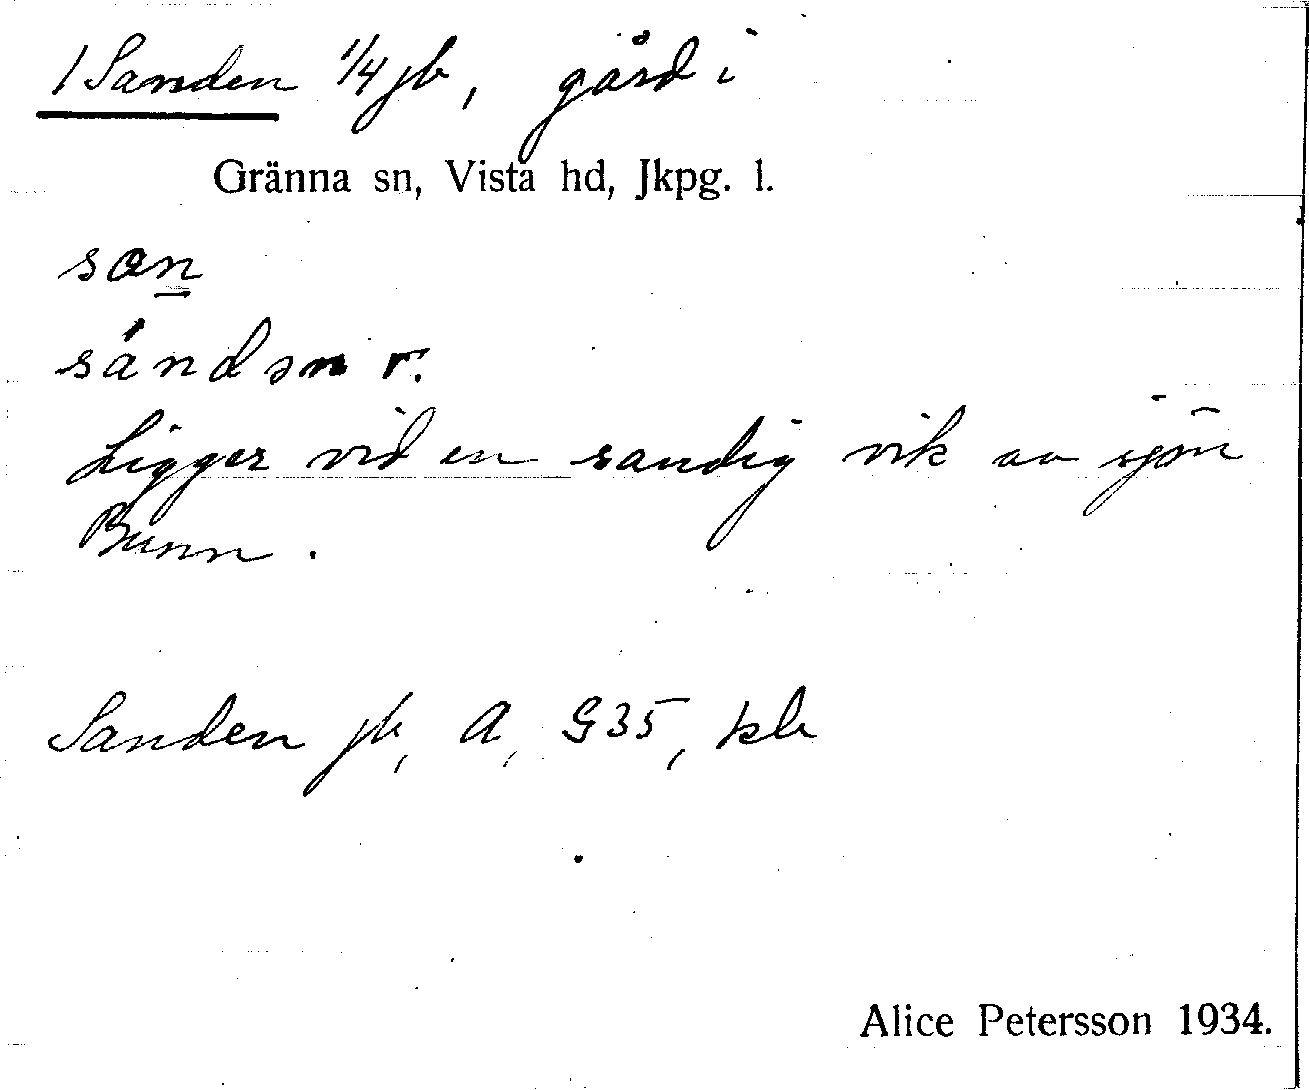 1 Sanden 1/4 jb, gård i
Gränna sn, Vista hd, Jkpg. l.
san
sándən r.
Ligger vid en sandig vik av sjön
Bunn.
Sanden jb, A, G35, kb
Alice Petersson 1934.